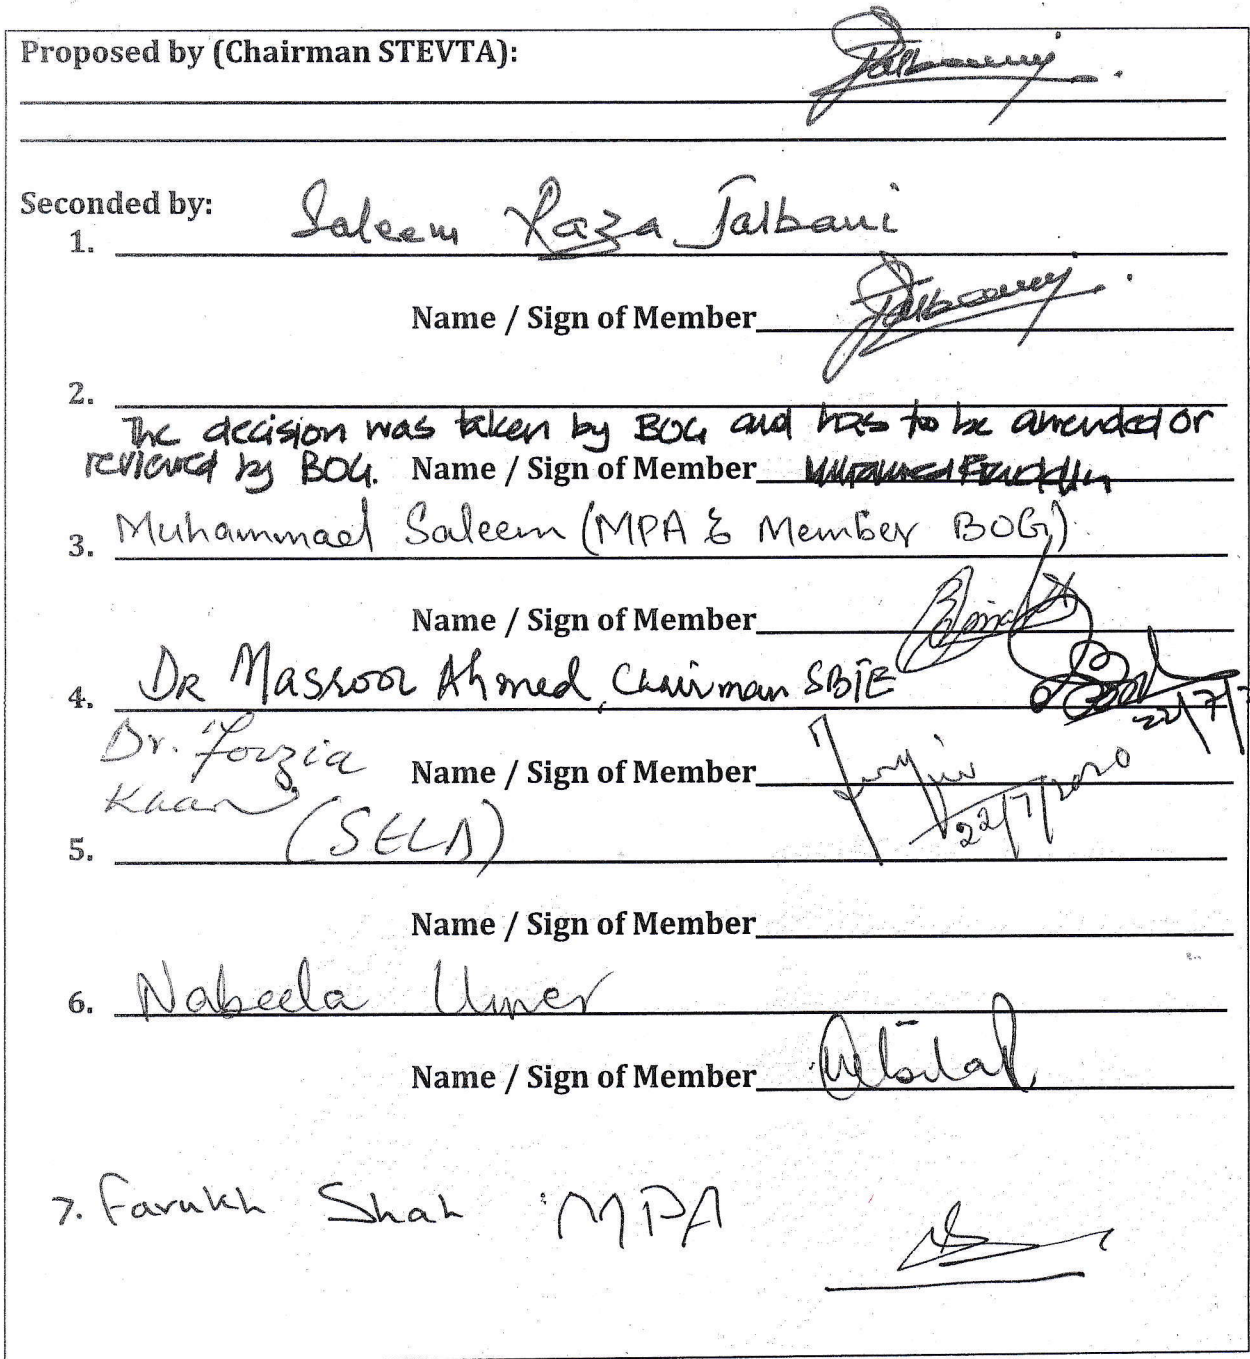 Proposed by (Chairman STEVTA):
Seconded by:
1. Saleem Raza Jalbani
Name / Sign of Member
2.
The decision was taken by BOG and has to be amended or
reviewed by BOG. Name / Sign of Member
3. Muhammad Saleem (MPA & Member BOG)
Name / Sign of Member
4. DR Massoor Ahmed, Chairman SBTE
22/7/
Dr. Fouzia
Khan Name / Sign of Member
22/7/2020
5. (SELD)
Name / Sign of Member
6. Nabeela Umer
Name / Sign of Member
7. Farukh Shah MPA